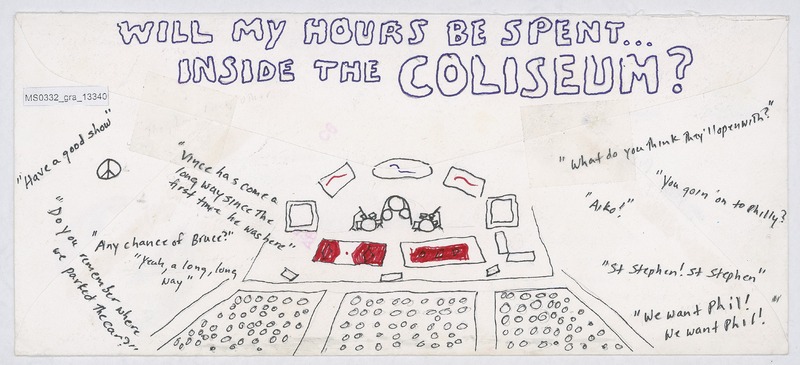 WILL MY HOURS BE SPENT...
INSIDE THE COLISEUM?
MS0332_gra_13340
"Have a good show"
"Vince has come a
long way since the
first time he was here"
"Do you remember where
we parked the car?"
"Any chance of Bruce?"
"Yeah, a long, long
way"
"What do you think they'll open with?"
"You goin' on to Philly?
"Aiko!"
"St Stephen! St Stephen"
"We want Phil!
We want Phil!"